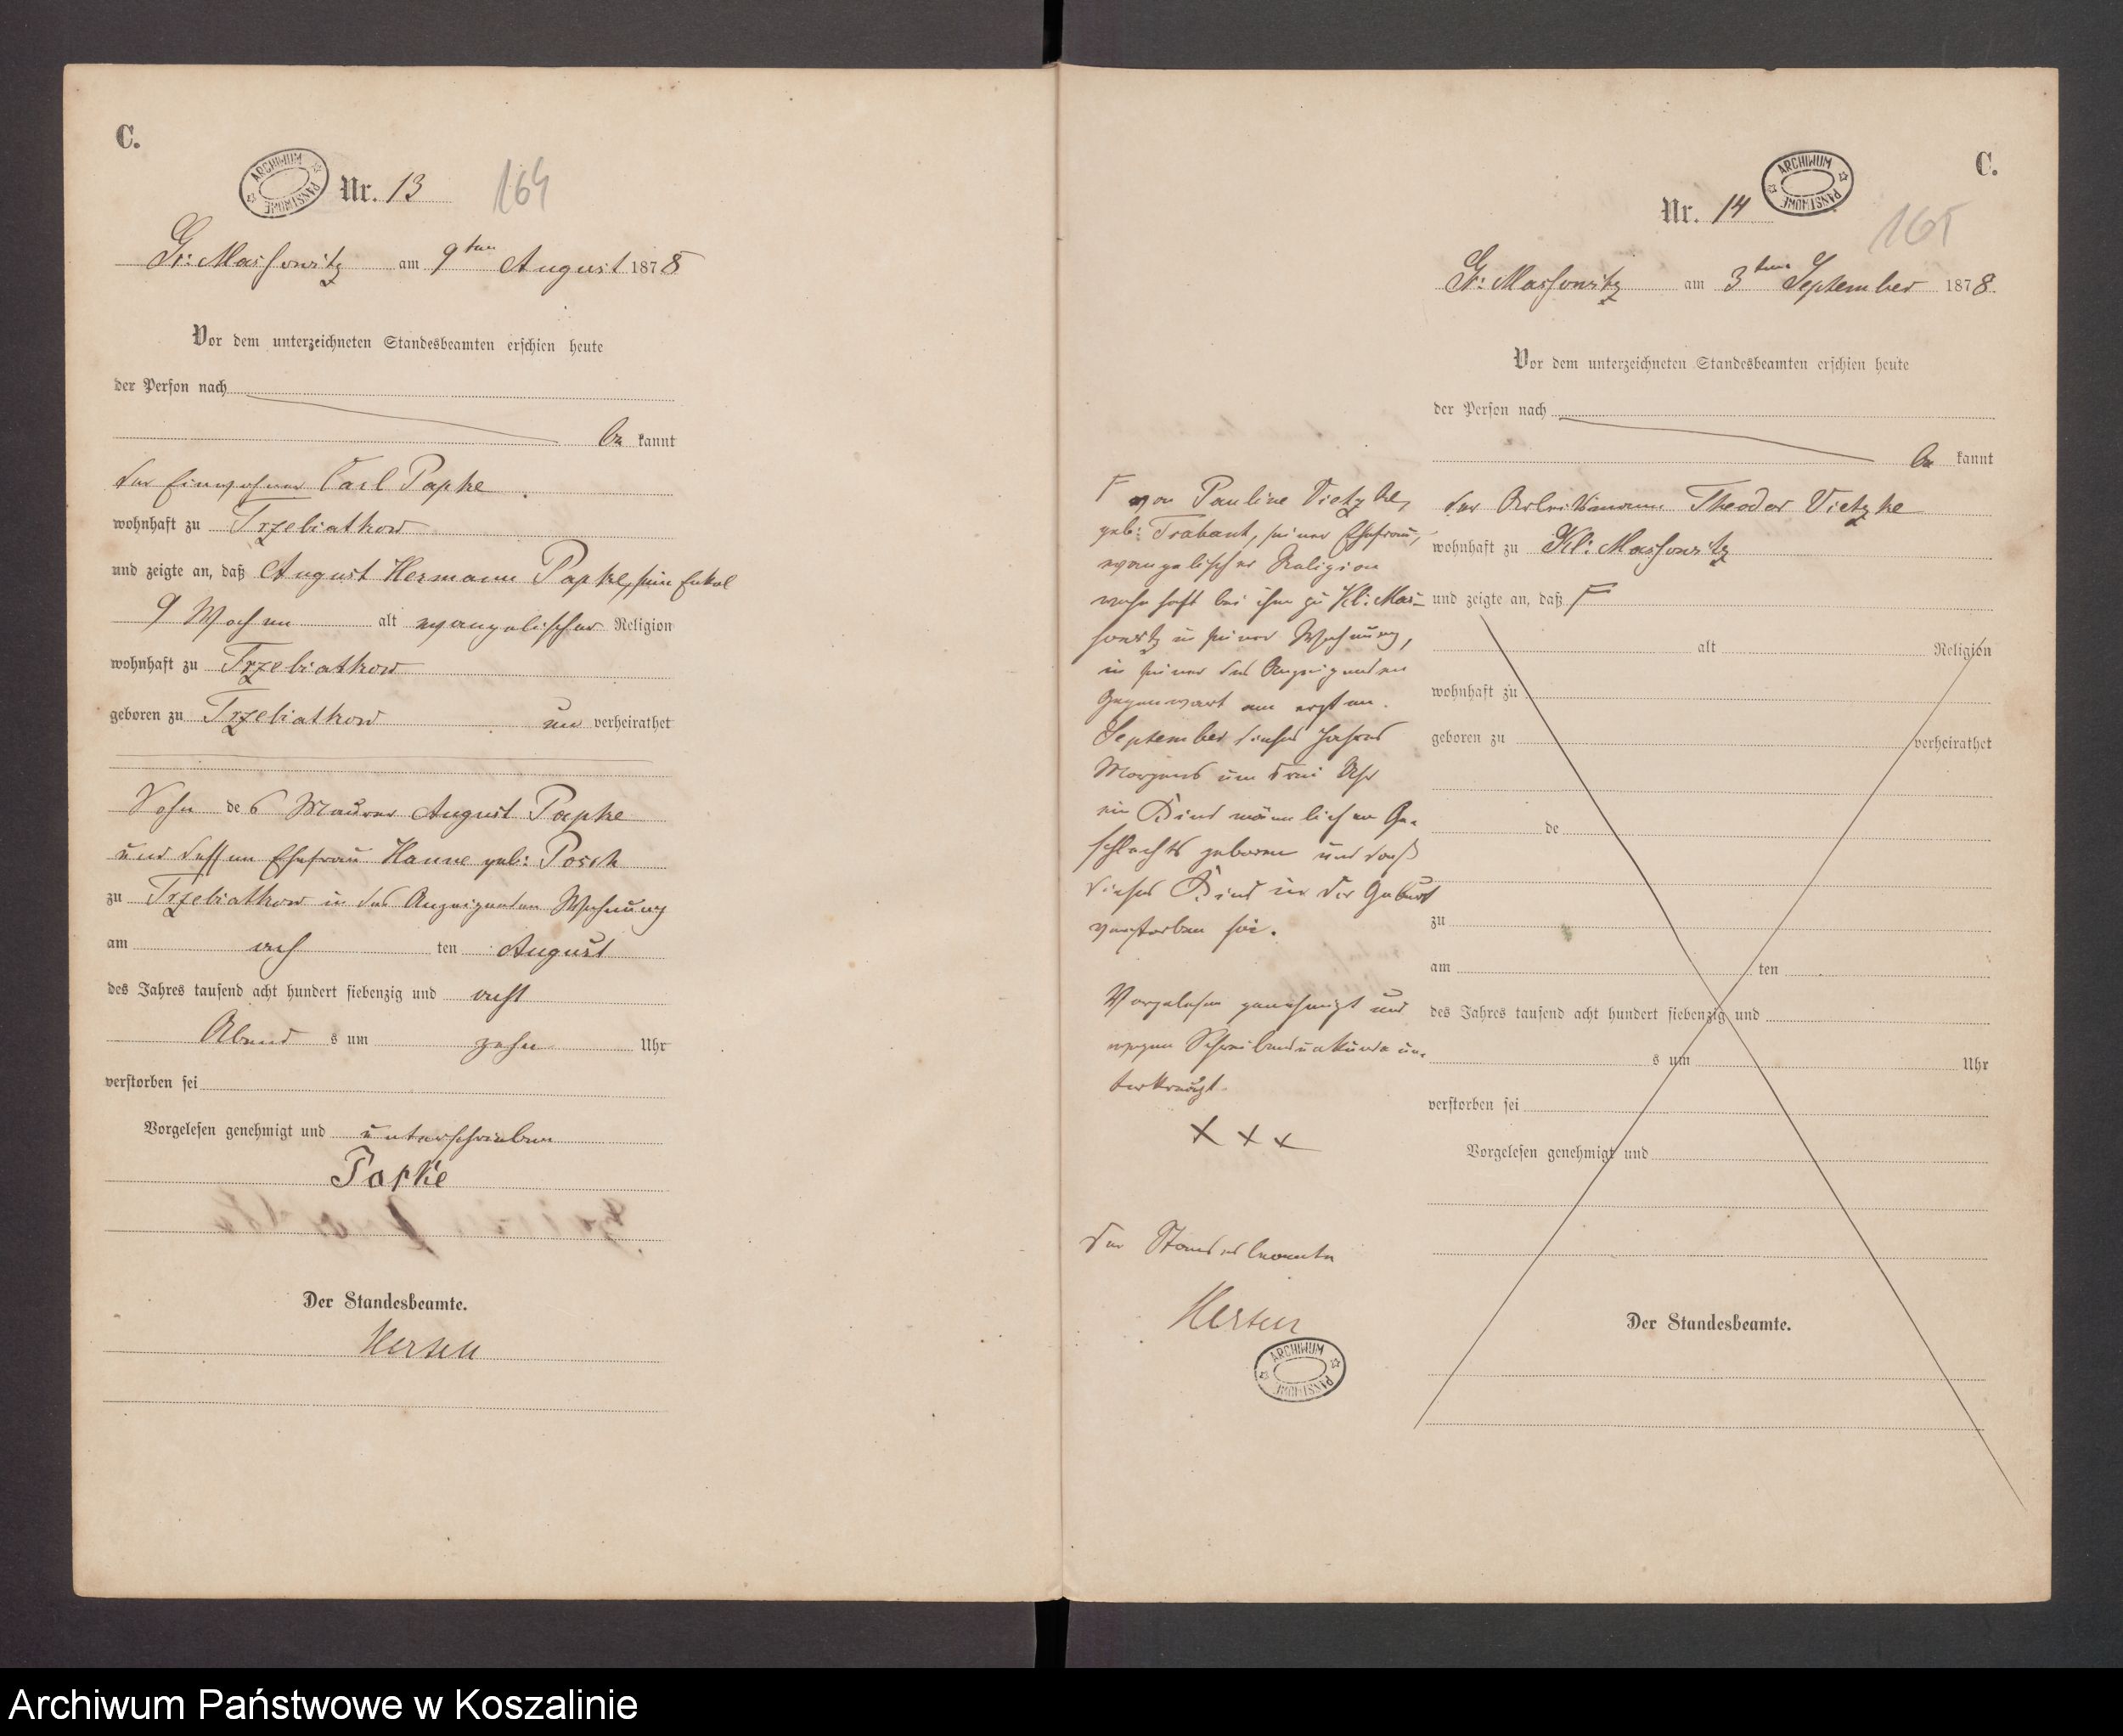 C.
ARCHIWUM PAŃSTWOWE
Nr. 13
164
Gr: Massowitz am 9ten August 1878
Vor dem unterzeichneten Standesbeamten erschien heute
der Person nach
be kannt
der Einwohner Carl Papke
wohnhaft zu Trzebiatkow
und zeigte an, daß August Hermann Papke, sein Enkel
9 Wochen alt evangelischer Religion
wohnhaft zu Trzebiatkow
geboren zu Trzebiatkow un verheirathet
Sohn des Maurer August Papke
und dessen Ehefrau Hanne geb: Posch
zu Trzebiatkow in des Anzeigenden Wohnung
am acht ten August
des Jahres tausend acht hundert siebenzig und acht
Abend s um zehn Uhr
verstorben sei
Vorgelesen genehmigt und unterschrieben
Papke
Der Standesbeamte.
C.
ARCHIWUM PAŃSTWOWE
Nr. 14
165
Gr: Massowitz am 3ten September 1878.
Vor dem unterzeichneten Standesbeamten erschien heute
der Person nach
be kannt
der Arbeitsmann Theodor Vietzke
wohnhaft zu Kl: Massowitz
und zeigte an, daß F
alt Religion
wohnhaft zu
geboren zu verheirathet
de
zu
am ten
des Jahres tausend acht hundert siebenzig und
s um Uhr
verstorben sei
Vorgelesen genehmigt und
Der Standesbeamte.
F von Pauline Vietzke,
geb: Trabant, seiner Ehefrau,
evangelischer Religion
wohnhaft bei ihm zu Kl: Mas-
sowitz in seiner Wohnung,
in seiner des Anzeigenden
Gegenwart am ersten
September dieses Jahres
Morgens um drei Uhr
ein Kind männlichen Ge-
schlechts geboren und daß
dieses Kind in der Geburt
verstorben sei.
Vorgelesen genehmigt und
wegen Schreibensunkunde un-
terkreuzt.
X X X
Der Standesbeamte
ARCHIWUM PAŃSTWOWE
Archiwum Państwowe w Koszalinie